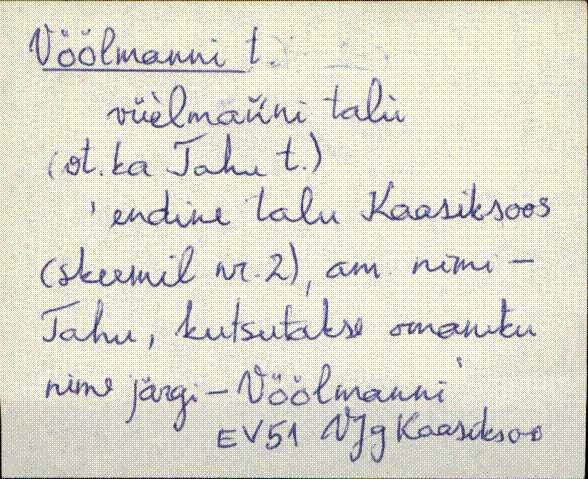 Vöölmanni t.
vüèlman̆ni talu̇
(ot. ka Tahu t.)
' endine talu Kaasiksoos
(skeemil nr. 2), am. nimi –
Tahu, kutsutakse omaniku
nime järgi – Vöölmanni'
EV51 VJg Kaasiksoo